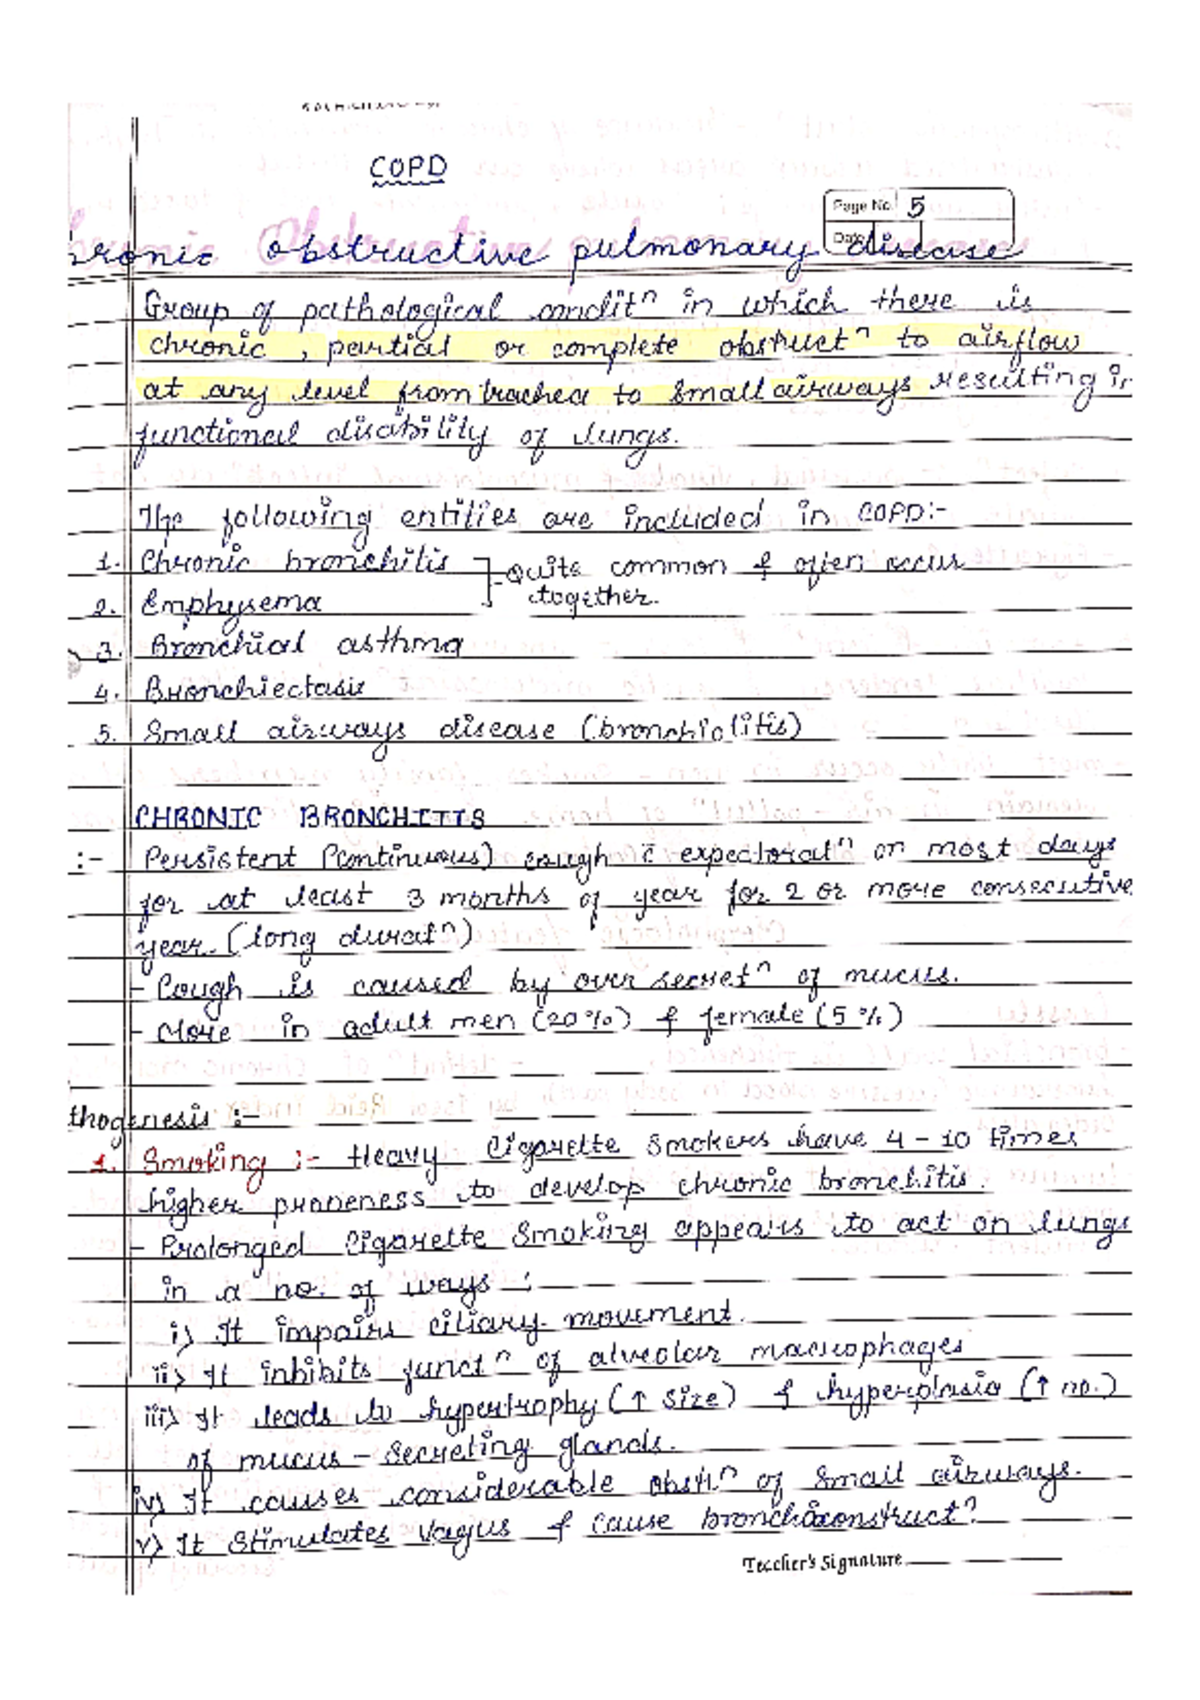 COPD
Page No. 5
Date
hronic Obstructive pulmonary disease
Group of pathological conditⁿ in which there is
chronic, partial or complete obstructⁿ to airflow
at any level from trachea to small airways resulting in
functional disability of lungs.
The following entities are included in COPD:-
1. Chronic bronchitis
- Quite common & often occur
together.
2. Emphysema
3. Bronchial asthma
4. Bronchiectasis
5. Small airways disease (bronchiolitis)
CHRONIC BRONCHITIS
:- Persistent (continuous) cough c̄ expectoratⁿ on most days
for at least 3 months of year for 2 or more consecutive
year. (long duratⁿ)
- Cough is caused by over secretⁿ of mucus.
- More in adult men (20%) & female (5%)
thogenesis :-
1. Smoking :- Heavy Cigarette Smokers have 4-10 times
higher proneness to develop chronic bronchitis
- Prolonged Cigarette Smoking appears to act on lungs
in a no. of ways :
i) It impairs ciliary movement.
ii) It inhibits functⁿ of alveolar macrophages
iii) It leads to hypertrophy (↑ size) & hyperplasia (↑ no.)
of mucus - secreting glands.
iv) It causes considerable obstⁿ of small airways.
v) It stimulates vagus & cause bronchoconstructⁿ
Teacher's Signature